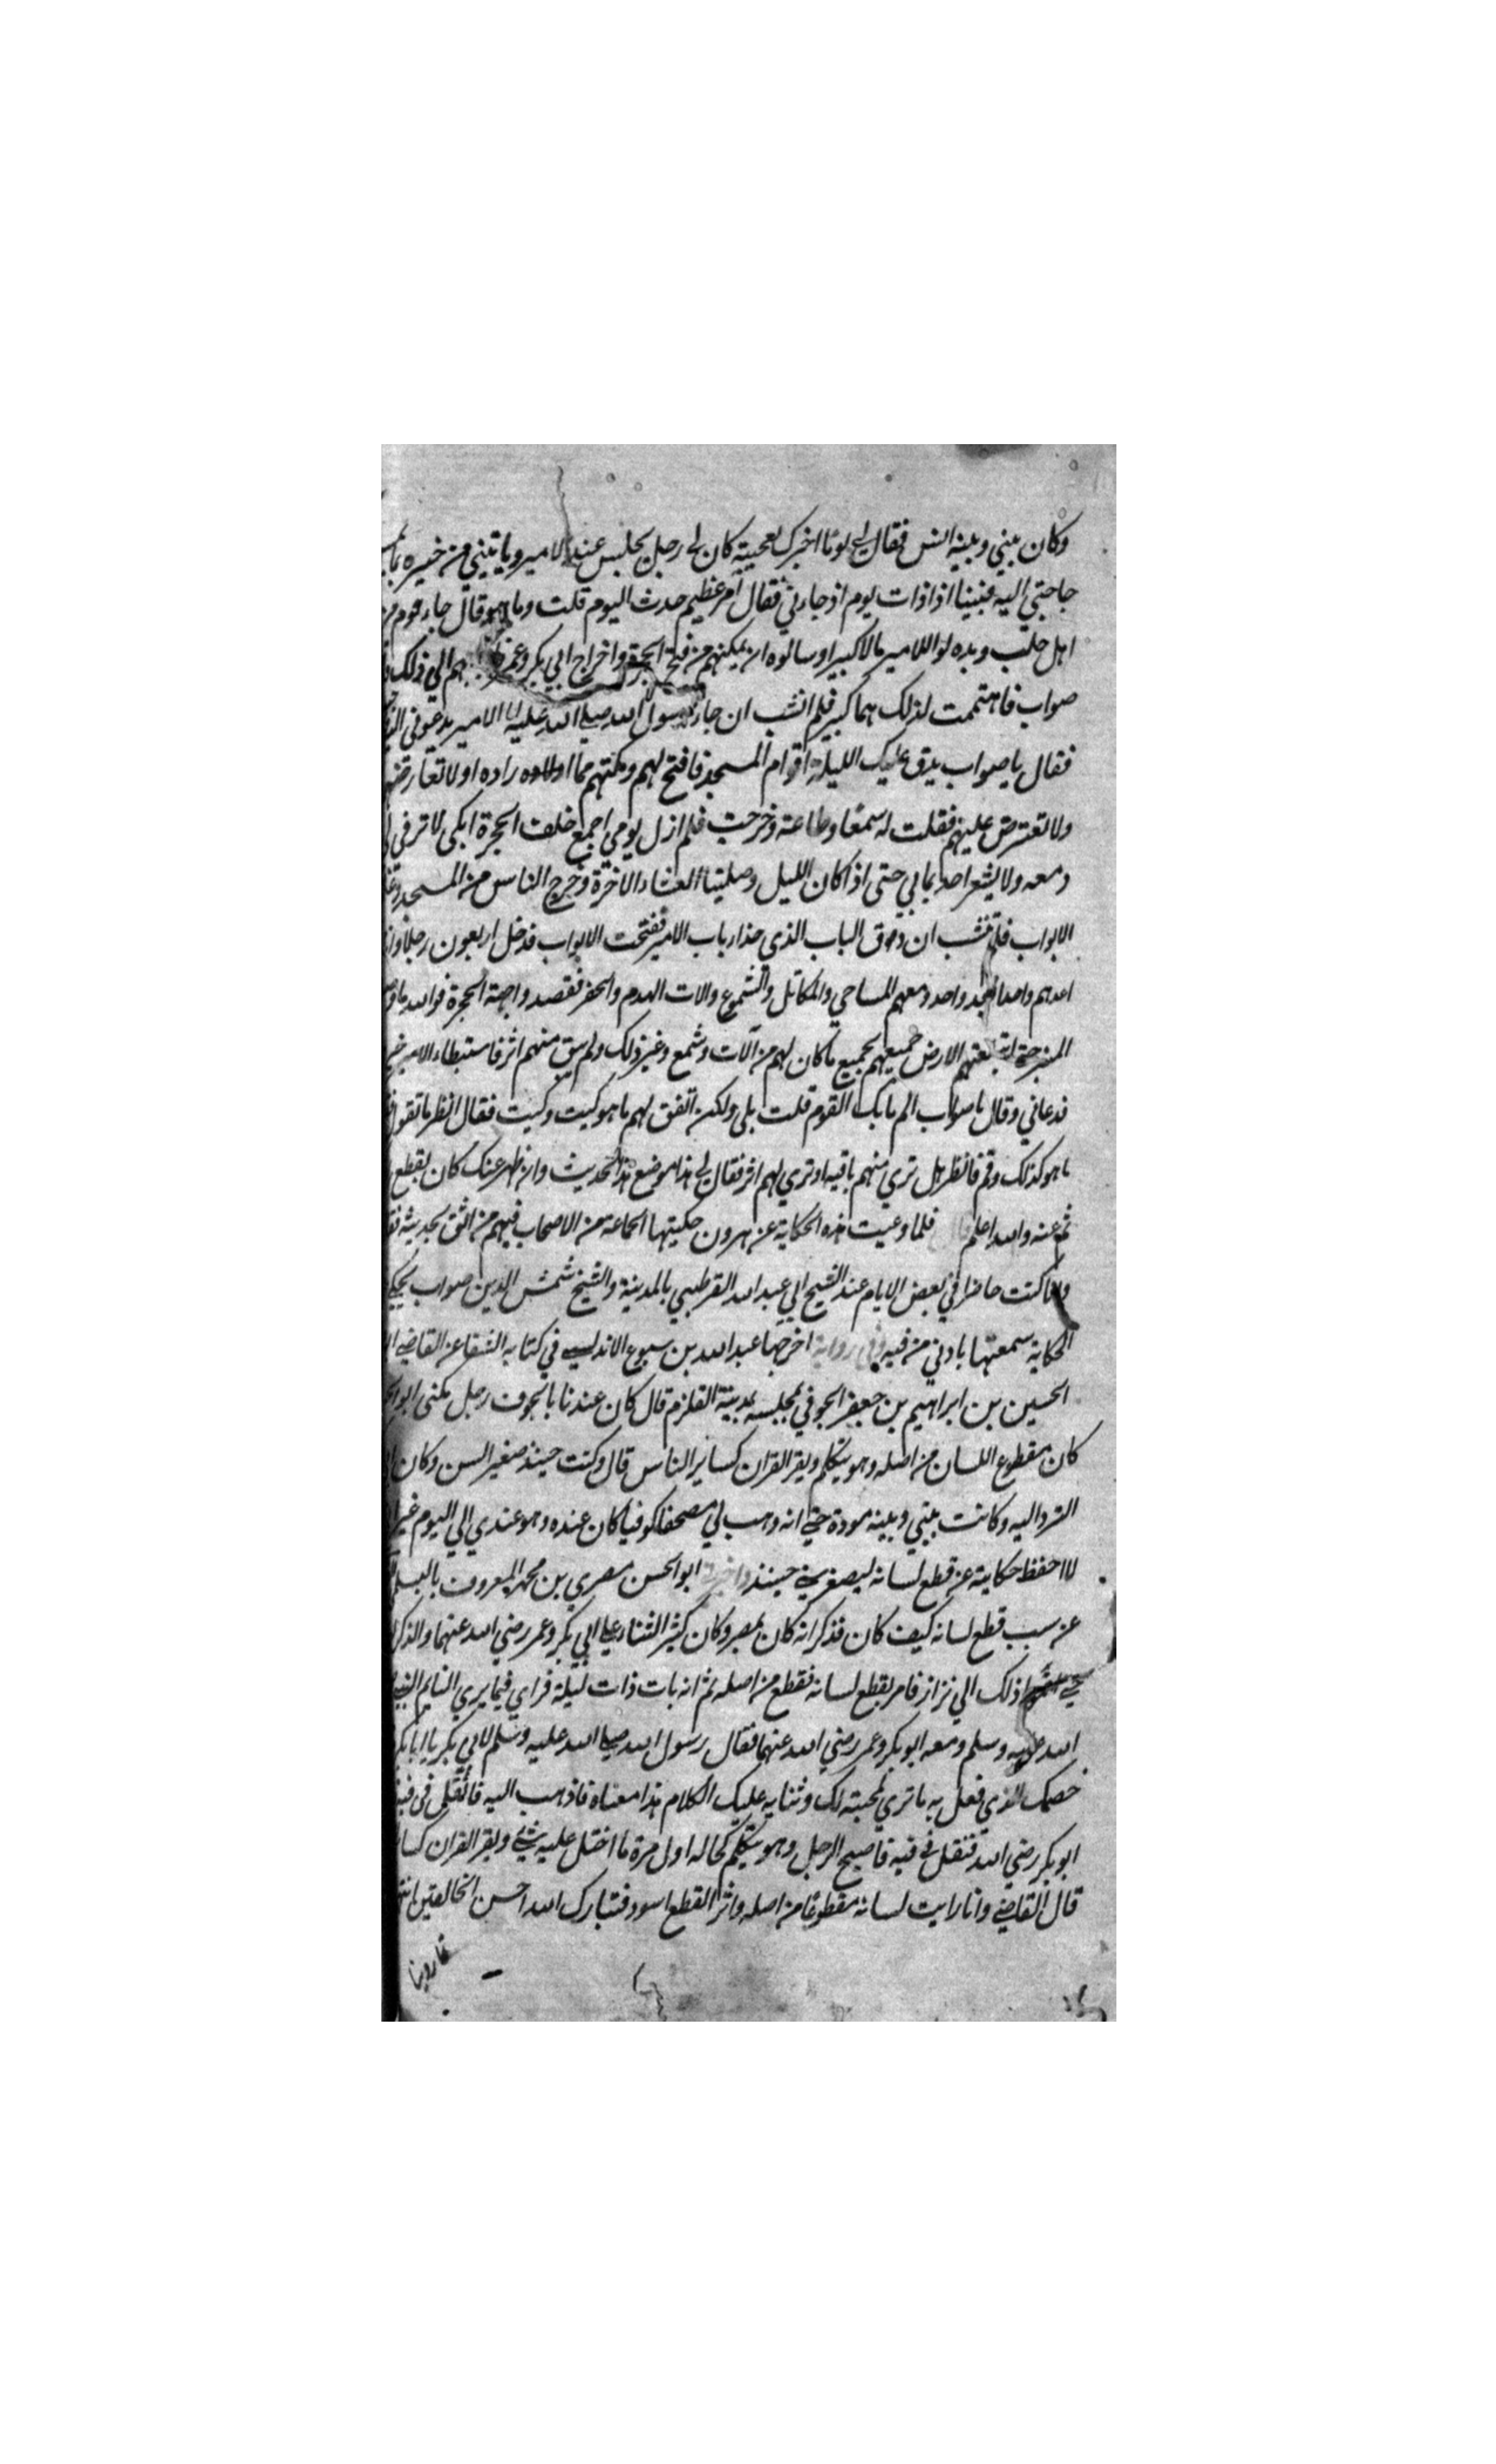 وكان بيني وبينه انس فقال لي يوما اخبرك بعجيبة كان لي رجل يجلس عند الامير وياتيني من خبره بما
حاجتي اليه فبينا اذا ذات يوم اذ جاءني فقال أمر عظيم حدث اليوم قلت وما هو قال جاء قوم من
اهل حلب وبدلوا للامير مالا كبيرا وسالوه ان يمكنهم من فتح الحجرة واخراج ابي بكر وعمر الي ذلك
صواب فاهتممت لذلك هما كبير فلم انشب ان جاء رسول الامير يدعوني
فقال يا صواب يدق عليك الليلة اقوام المسجد فافتح لهم ومكنهم مما ارادوه ولا تعارضهم
ولا تعترض عليهم فقلت له سمعا وطاعة وخرجت فلم ازل يومي اجمع خلف الحجرة ابكي لا ترقى لي
دمعه ولا يشعر احد بما بي حتى اذا كان الليل وصلينا العشاء الاخرة وخرج الناس من المسجد
الابواب فلم ننشب ان دق الباب الذي حذاء باب الامير ففتحت الابواب فدخل اربعون رجلا
اعدهم واحدا بعد واحد ومعهم المساحي والمكاتل والشموع والات الهدم والحفر فقصدوا جهة الحجرة فوالله ما
المنبر حتى ابتلعتهم الارض جميعهم بجميع ما كان لهم من آلات وشمع وغير ذلك ولم يبق منهم اثر فاستبطاء الامير
فدعاني وقال يا صواب الم ياتك القوم قلت بلى ولكن اتفق لهم ما هو كيت وكيت فقال انظر ما تقول
ما هو كذلك وقم فانظر هل تري منهم باقيه او تري لهم اثر فقال لي هذا موضع هذا الحديث وان ظهر عنك كان بقطع
ثم عنه والله اعلم فلما وعيت هذه الحكاية عن هرون حكيتها لجماعة من الاصحاب فيهم من اثق بحديثه
كنت حاضرا في بعض الايام عند الشيخ ابي عبد الله القرطبي بالمدينة والشيخ شمس الدين صواب يحكي
الحكاية سمعتها باذني من فيه وفي رواية اخرجها عبد الله بن سبوع الاندلسي في كتابه الشفا عن القاضي
الحسين بن ابراهيم بن جعفر الجوفي بمجلسه بمدينة القلزم قال كان عندنا بالجوف رجل مكنى
كان مقطوع اللسان من اصله وهو يتكلم ويقرا القران كساير الناس قال وكنت حينئذ صغير السن وكان
اتردد اليه وكانت بيني وبينه مودة حتى انه وهب لي مصحفا كوفيا كان عنده وهو عندي الي اليوم غير
لا احفظ حكايته عن قطع لسانه لصغري حينئذ ابو الحسن مصري بن محمد المعروف
عن سبب قطع لسانه كيف كان فذكر انه كان بمصر وكان كثير الثناء علي ابي بكر وعمر رضي الله عنهما والذكر
حتي ذلك الي نزار فامر بقطع لسانه فقطع من اصله ثم انه بات ذات ليلة فراي فيما يري النايم
الله عليه وسلم ومعه ابو بكر وعمر رضي الله عنهما فقال رسول الله صلي الله عليه وسلم لابي بكر يا ابا بكر
خصمك الذي فعل به ما تري لمحبته لك وثنايه عليك الكلام هذا معناه فاذهب اليه فاتفل في فيه
ابو بكر رضي الله فتفل في فيه فاصبح الرجل وهو يتكلم كحاله اول مرة ما اختل عليه شيء ويقرا القران
قال القاضي وانا رايت لسانه مقطوعا من اصله واثر القطع اسود فتبارك الله احسن الخالقين